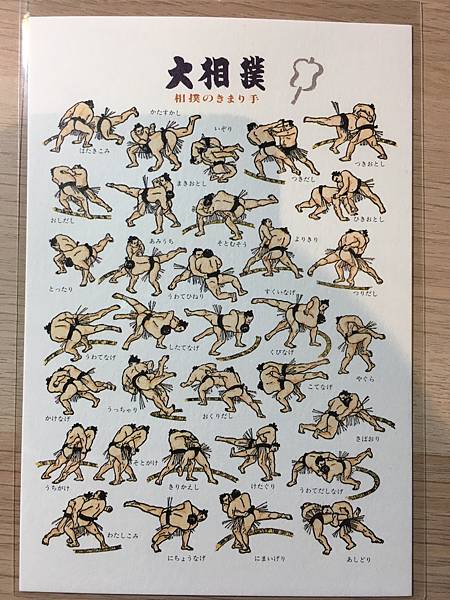 大相撲
相撲のきまり手
かたすかし
いぞり
はたきこみ
つきだし
つきおとし
まきおとし
おしだし
ひきおとし
あみうち
そとむそう
よりきり
とったり
うわてひねり
すくいなげ
つりだし
うわてなげ
したてなげ
くびなげ
やぐら
かけなげ
うっちゃり
おくりだし
こてなげ
さばおり
うちがけ
そとがけ
きりかえし
けたぐり
うわてだしなげ
わたしこみ
にちょうなげ
にまいげり
あしどり